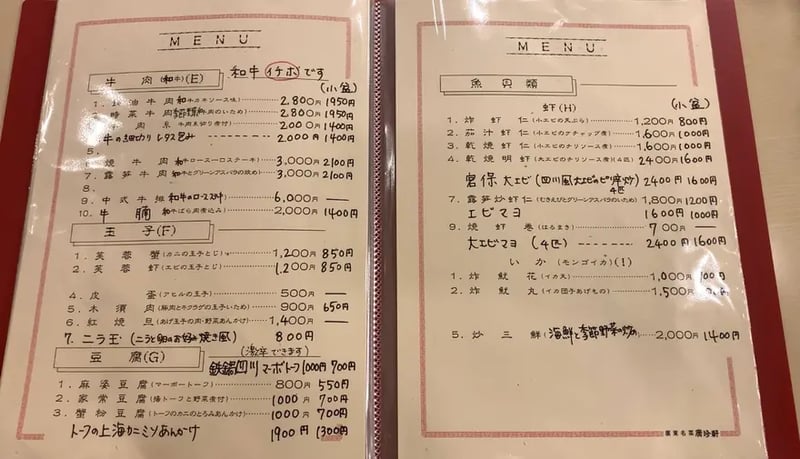 MENU
牛肉(和牛)(E) 和牛イチボです
(小盆)
1. 油牛肉 和牛カキソース味) 2,800円 1950円
2. 時菜牛肉 牛肉のいため) 2,800円 1950円
牛肉糸 牛肉糸切り煮付) 2000円 1400円
牛の細切り レタス包み 2000円 1400円
5.
6. 燒牛肉 和牛ロースステーキ) 3,000円 2100円
7. 露笋牛肉 和牛とグリーンアスパラの炒め) 3,000円 2100円
8.
9. 中式牛排 和牛のロース 6,000円 —
10. 牛腩 和牛ばら肉煮込み) 2,000円 1400円
玉子(F)
1. 芙蓉蟹(カニの玉子とじ) 1,200円 850円
2. 芙蓉蝦(エビの玉子とじ) 1,200円 850円
4. 皮蛋(アヒルの玉子) 500円 —
5. 木須肉(豚肉とキクラゲの玉子いため) 900円 650円
6. 紅燒旦(あげ玉子の肉・野菜あんかけ) 1,400円 —
7. ニラ玉(ニラと卵のお好み焼き風) 800円
豆腐(G) (激辛できます)
鉄鍋四川マーボトーフ 1000円 700円
1. 麻婆豆腐(マーボートーフ) 800円 550円
2. 家常豆腐(揚トーフと野菜煮付) 1000円 700円
3. 蟹粉豆腐(トーフのカニのとろみあんかけ) 1000円 700円
トーフの上海カニミソあんかけ 1900円 1300円
MENU
魚貝類
蝦(H) (小盆)
1. 炸蝦仁(小エビの天ぷら) 1,200円 800円
2. 茄汁蝦仁(小エビのケチャップ煮) 1,600円 1000円
3. 乾燒蝦仁(小エビのチリソース煮) 1,600円 1000円
4. 乾燒明蝦(大エビのチリソース煮)(4匹) 2400円 1600円
宮保大エビ(四川風大エビのピリ辛炒)4匹 2400円 1600円
7. 露笋炒蝦仁(むきえびとグリーンアスパラのいため) 1,800円 1200円
エビマヨ 1600円 1000円
9. 燒蝦巻(はるまき) 700円 —
大エビマヨ(4匹) 2400円 1600円
いか(モンゴイカ)(I)
1. 炸魷花(イカ天) 1,000円 700円
2. 炸魷丸(イカ団子あげもの) 1,500円
5. 炒三鮮(海鮮と季節野菜の炒め) 2,000円 1400円
廣東名菜 廣珍軒